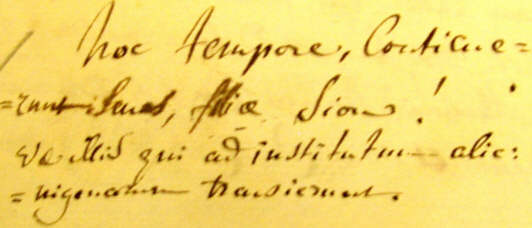 hoc tempore, Conticue=
=runt senes, filiæ Sion!
Væ illis qui ad institutum alie:
=nigenarum transierunt.